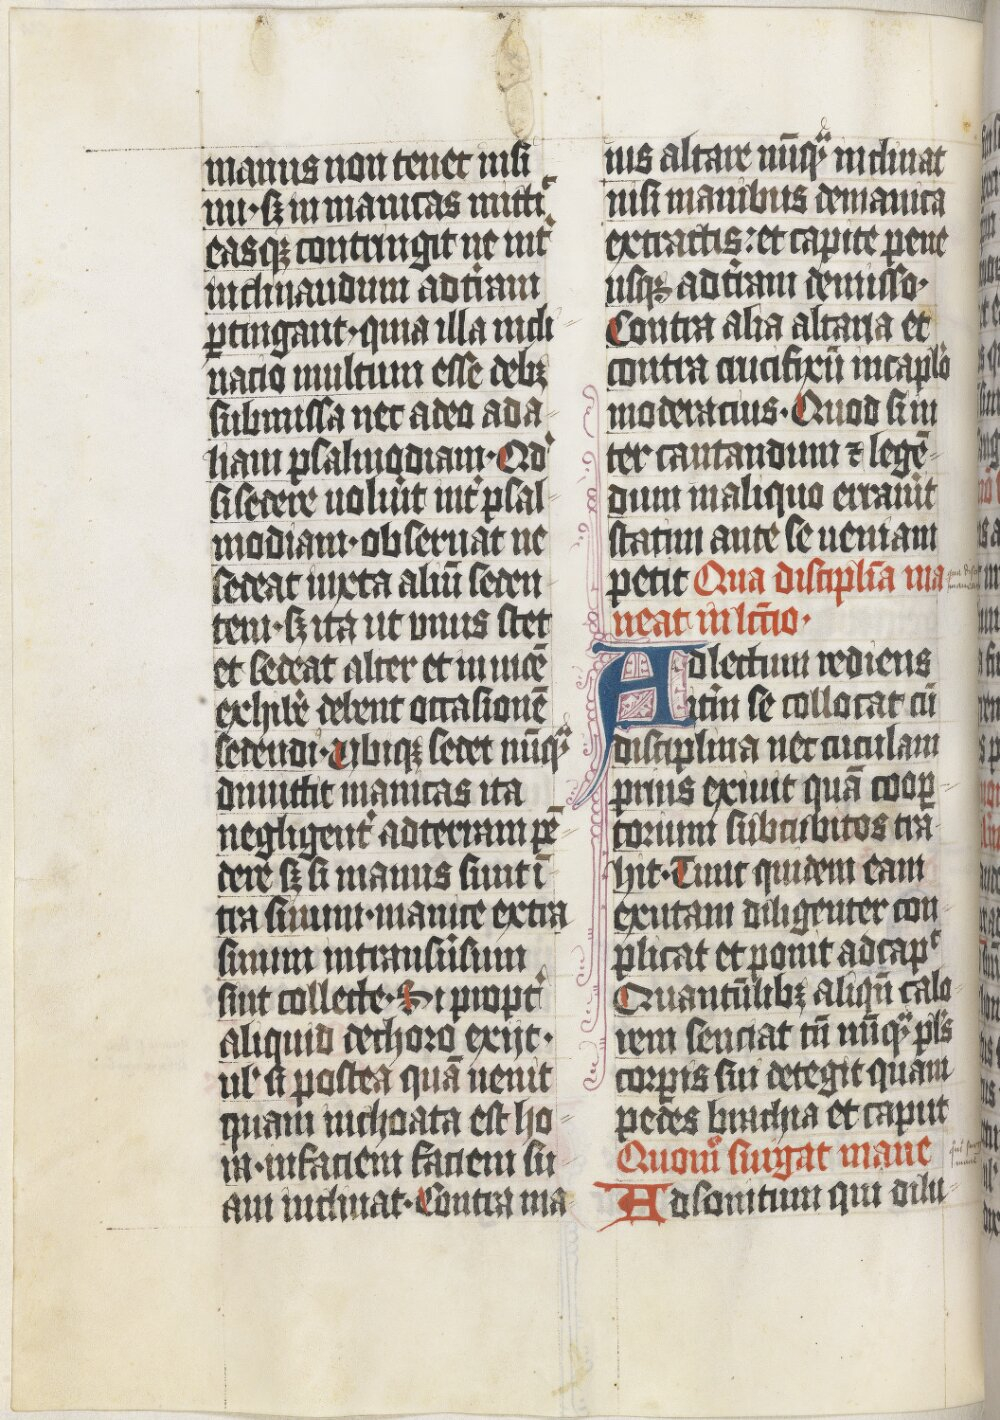 manus non tenet nisi
nu· sꝫ in manicas mittit
easqꝫ contringit ne int̾
inclinandum ad t̾ram
ꝑtingant· quia illa incli
natio multum esse debꝫ
submissa nec adeo ad a-
liam psalmodiam· Qd̾
si sedere uolu̾it int̾ psal-
modiam· obseruat ne
sedeat iuxta aliū seden
tem· sꝫ ita ut unus stet
et sedeat alter et inuicē
exhibe̾ debent occasionē
sedendi· Ubiqꝫ sedet nūqᷓ
dimittit manicas ita
negligent̾ ad terram pē-
dere sꝫ si manus sunt ī
tra sinum· manice extra
sinum in transūsum
sint collecte· Si propt̾
aliquid de choro exijt·
ul̾ si postea quā uenit
quam inchoata est ho
ra· in faciem faciem su
am inclinat· Contra ma
ius altare nūqᷓ inclinat
nisi manibus de manica
extractis: et capite pene
usqꝫ ad t̾ram demisso·
Contra alia altaria et
contra crucifixū in capl̾o
moderatius· Quod si in
ter cantandum ⁊ legē-
dum in aliquo errau̾it
statim ante se ueniam
petit Qua discipl̄ia ma
neat in lc̄tio·
Ad lectum rediens
ita se collocat cū
disciplina nec cucullam
prius exuit quā coop̱
torium sub cubitos tra
hit· Tunc quidem eam
exutam diligenter con
plicat et ponit ad cap̾
Quantūlibꝫ aliqn̄ calo
rem senciat tn̄ nūqᷓ pl̾s
corꝑis sui detegit quam
pedes brachia et caput
Quom̊ surgat mane
Ad sonitum qui dilu